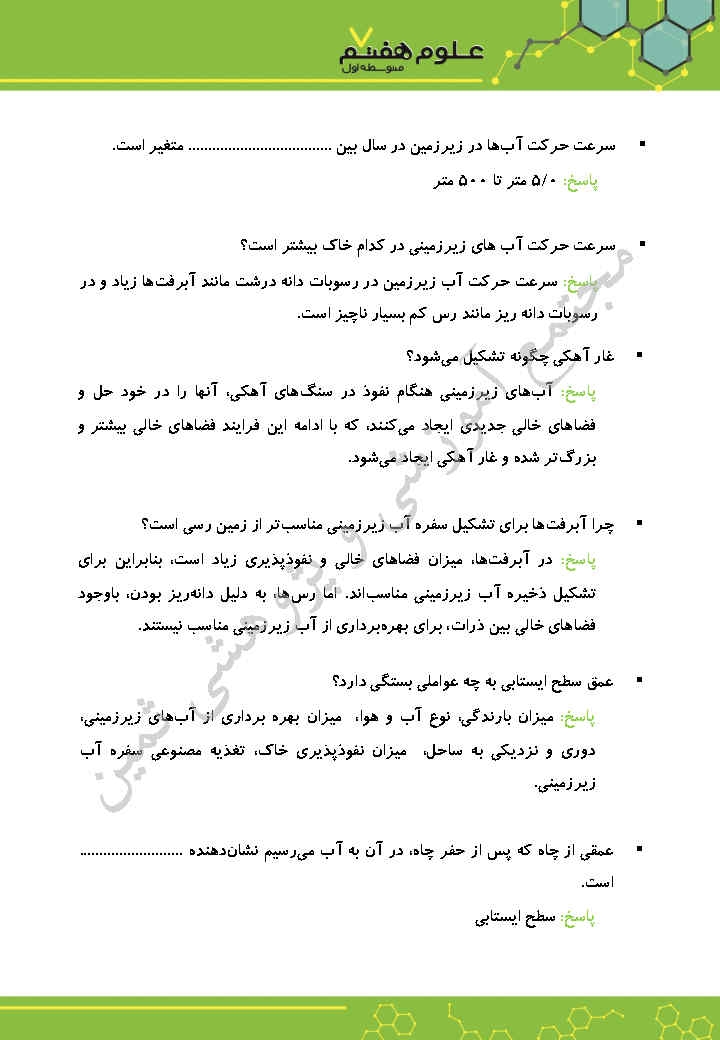 علوم هفتم ۷
متوسطه اول
▪ سرعت حرکت آب‌ها در زیرزمین در سال بین .................................... متغیر است.
پاسخ: ۵/۰ متر تا ۵۰۰ متر
▪ سرعت حرکت آب های زیرزمینی در کدام خاک بیشتر است؟
پاسخ: سرعت حرکت آب زیرزمین در رسوبات دانه درشت مانند آبرفت‌ها زیاد و در
رسوبات دانه ریز مانند رس کم بسیار ناچیز است.
▪ غار آهکی چگونه تشکیل می‌شود؟
پاسخ: آب‌های زیرزمینی هنگام نفوذ در سنگ‌های آهکی، آنها را در خود حل و
فضاهای خالی جدیدی ایجاد می‌کنند، که با ادامه این فرایند فضاهای خالی بیشتر و
بزرگ‌تر شده و غار آهکی ایجاد می‌شود.
▪ چرا آبرفت‌ها برای تشکیل سفره آب زیرزمینی مناسب‌تر از زمین رسی است؟
پاسخ: در آبرفت‌ها، میزان فضاهای خالی و نفوذپذیری زیاد است، بنابراین برای
تشکیل ذخیره آب زیرزمینی مناسب‌اند. اما رس‌ها، به دلیل دانه‌ریز بودن، باوجود
فضاهای خالی بین ذرات، برای بهره‌برداری از آب زیرزمینی مناسب نیستند.
▪ عمق سطح ایستابی به چه عواملی بستگی دارد؟
پاسخ: میزان بارندگی، نوع آب و هوا، میزان بهره برداری از آب‌های زیرزمینی،
دوری و نزدیکی به ساحل، میزان نفوذپذیری خاک، تغذیه مصنوعی سفره آب
زیرزمینی.
▪ عمقی از چاه که پس از حفر چاه، در آن به آب می‌رسیم نشان‌دهنده ..........................
است.
پاسخ: سطح ایستابی
مجتمع آموزشی و پژوهشی ثمین